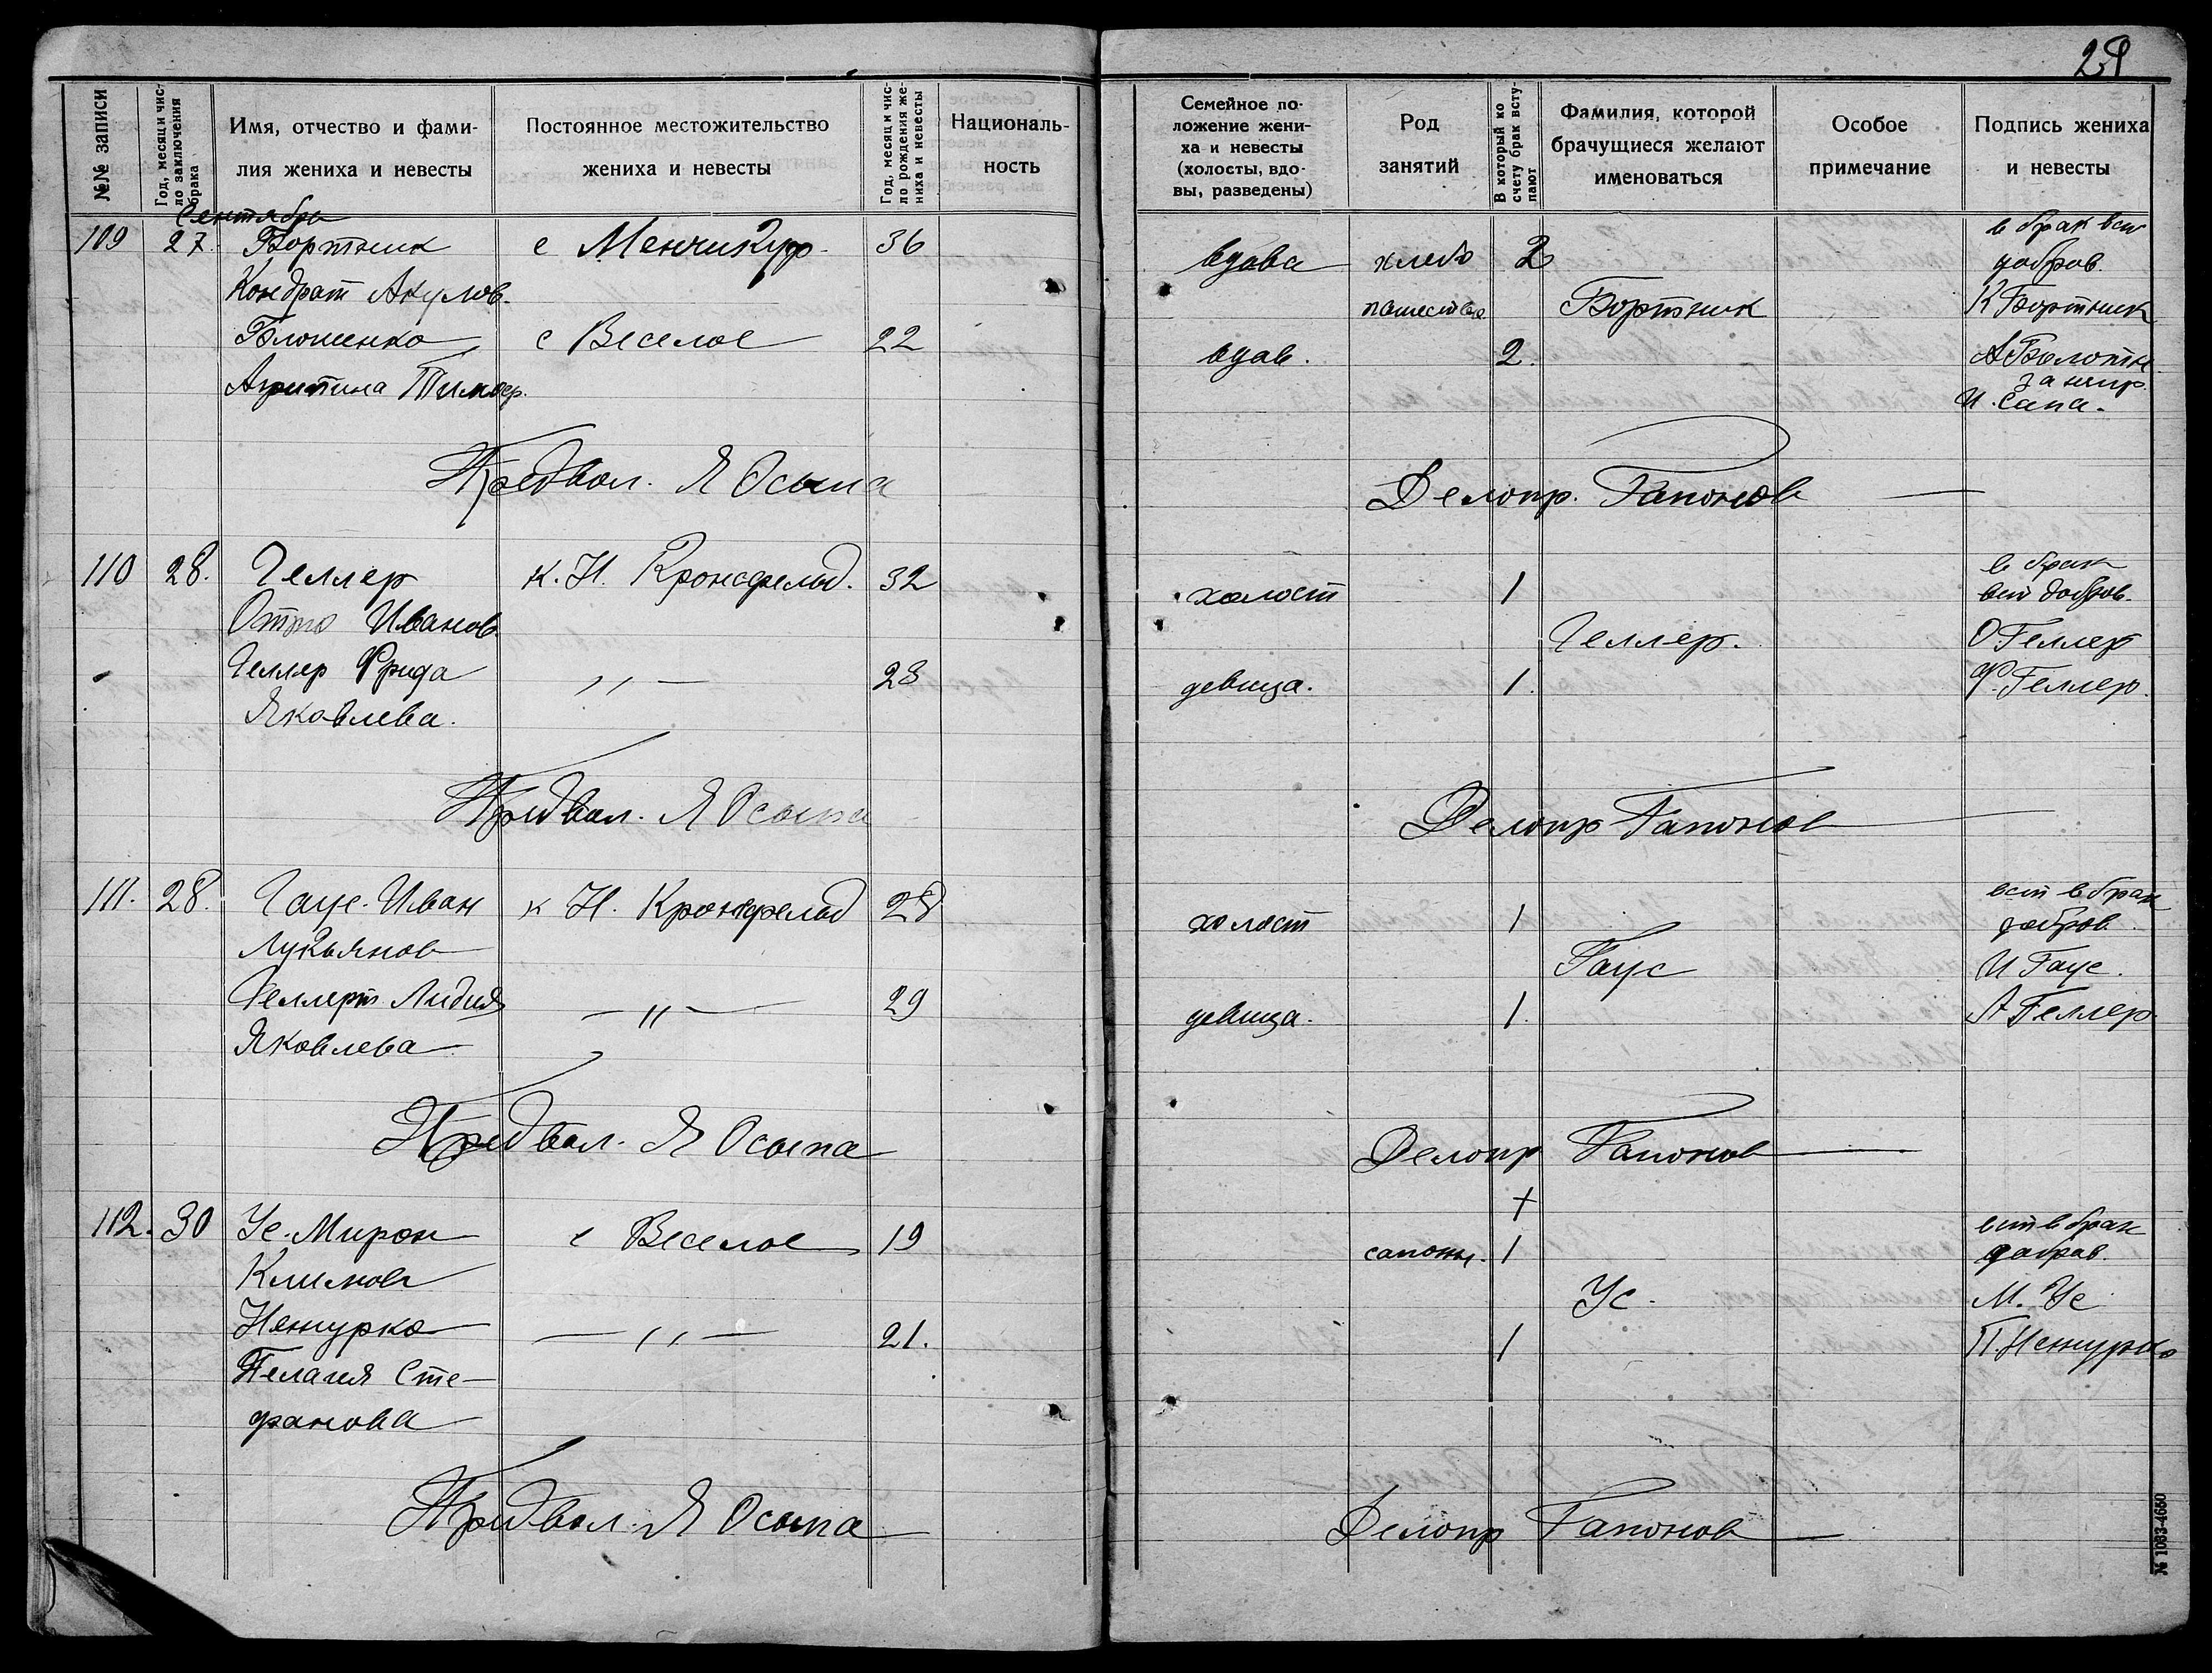 29
№№ записи
Год, месяц и чис-
ло заключения
брака
Имя, отчество и фами-
лия жениха и невесты
Постоянное местожительство
жениха и невесты
Год, месяц и чис-
ло рождения же-
ниха и невесты
Националь-
ность
Семейное по-
ложение жени-
ха и невесты
(холосты, вдо-
вы, разведены)
Род
занятий
В который ко
счету брак всту-
пают
Фамилия, которой
брачущиеся желают
именоваться
Особое
примечание
Подпись жениха
и невесты
Сентября
109 27. Бортник с Менчикур 36 вдова хлебо 2 в брак вст
Кондрат Акулов. пашество Бортник добров.
К Бортник
с Веселое 22 вдов. 2.
Тимоф. И. Сапа.
Предвол. Я Осыпа Делопр. Гапонов
110 28. Геллер к. Н. Кронсфельд. 32 холост 1 в брак
вст добров.
Отто Иванов. Геллер. О. Геллер
Геллер Фрида ,, 28 девица. 1. Ф. Геллер.
Яковлева.
Предвол. Я Осыпа Делопр Гапонов
111. 28. Гаус Иван к Н. Кронсфельд 28 холост 1 вст в брак
добров.
Лукьянов Гаус И Гаус.
Лидия ,, 29 девица. 1. Геллер.
Яковлева
Предвол. Я Осыпа Делопр Гапонов
112. 30 Ус Мирон с Веселое 19 1 вст в брак
добров.
Климов Ус М. Ус
,, 21. 1
Пелагея Сте-
фанова
Предвол. Я Осыпа Делопр Гапонов
№ 1083-4650